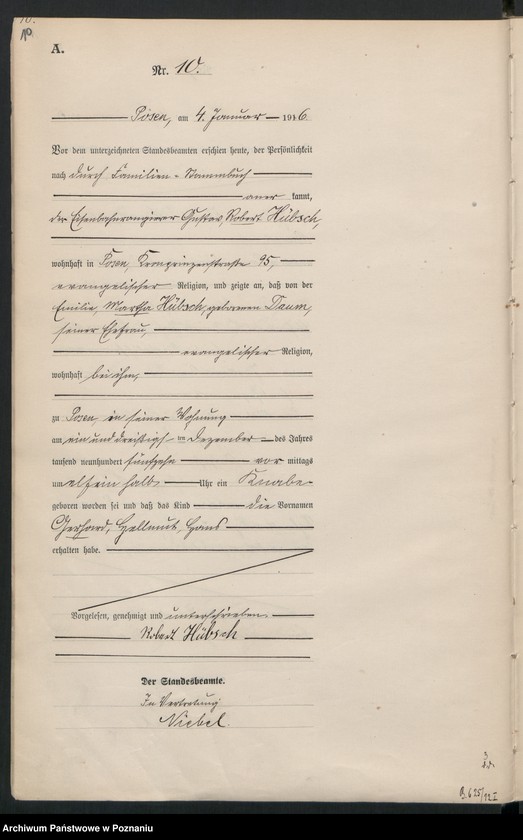 10.
10.
A.
Nr. 10.
Posen, am 4. Januar 1916.
Vor dem unterzeichneten Standesbeamten erschien heute, der Persönlichkeit
nach durch Familien-Stammbuch
aner kannt,
der Eisenbahnrangierer Gustav Robert Hübsch,
wohnhaft in Posen, Kronprinzenstraße 95,
evangelischer Religion, und zeigte an, daß von der
Emilie Martha Hübsch, geborenen Daum,
seiner Ehefrau,
evangelischer Religion,
wohnhaft bei ihm,
zu Posen, in seiner Wohnung
am einunddreißigsten Dezember des Jahres
tausend neunhundert fünfzehn vor mittags
um elfeinhalb Uhr ein Knabe
geboren worden sei und daß das Kind die Vornamen
Gerhard, Hellmut Hans
erhalten habe.
Vorgelesen, genehmigt und unterschrieben.
Robert Hübsch
Der Standesbeamte.
In Vertretung
Niebel.
Archiwum Państwowe w Poznaniu